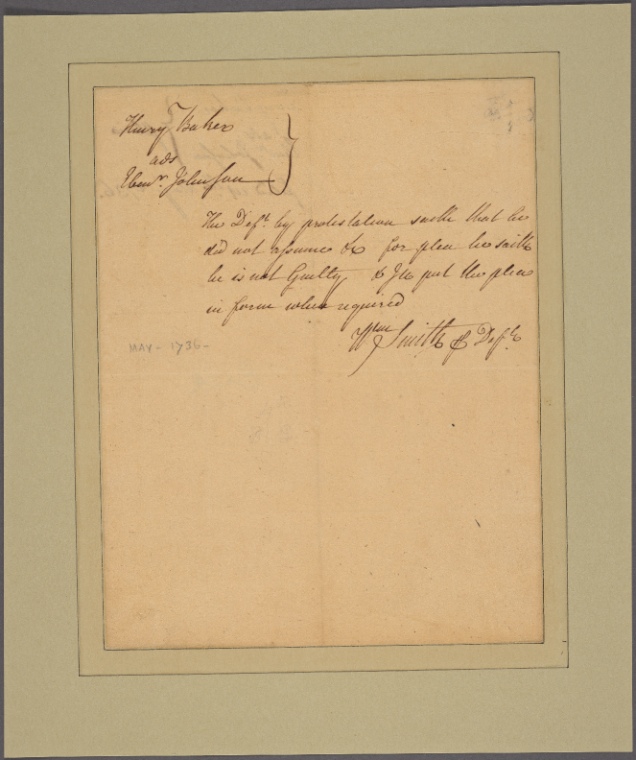 Henry Baker
ads
Eben.r Johnson
The Def.t by protestation saith that he
did not assume &c for plea he saith
he is not Guilty & Ile put the plea
in forme when required
W.m Smith p Def.t
MAY - 1736 -